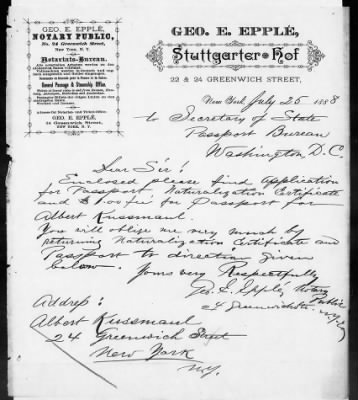 GEO. E. EPPLÉ,
NOTARY PUBLIC,
No. 24 Greenwich Street,
New York, N. Y.
Notariats-Bureau.
General Passage & Steamship Office.
GEO. E. EPPLÉ,
24 Greenwich Street,
NEW YORK, N. Y.
GEO. E. EPPLÉ,
Stuttgarter-Hof
22 & 24 GREENWICH STREET,
New York July 25 1888
to Secretary of State
Passport Bureau
Washington D.C.
Dear Sir!
Enclosed please find Application
for Passport Naturalization Certificate
and $1.00 fee for Passport for
Albert Kussmaul.
You will oblige me very much by
returning Naturalization Certificate and
Passport to direction given
below. Yours very Respectfully
Geo. E. Epplé, Notary
Public
24 Greenwich str. N.Y. City
Address:
Albert Kussmaul
24 Greenwich Street
New York
N.Y.